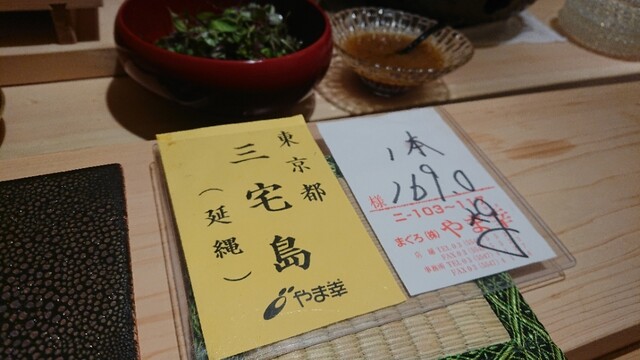 東京都
三宅島
（延縄）
やま幸
1本
169.0
様
ニ-103~11
まぐろ（株）やま幸